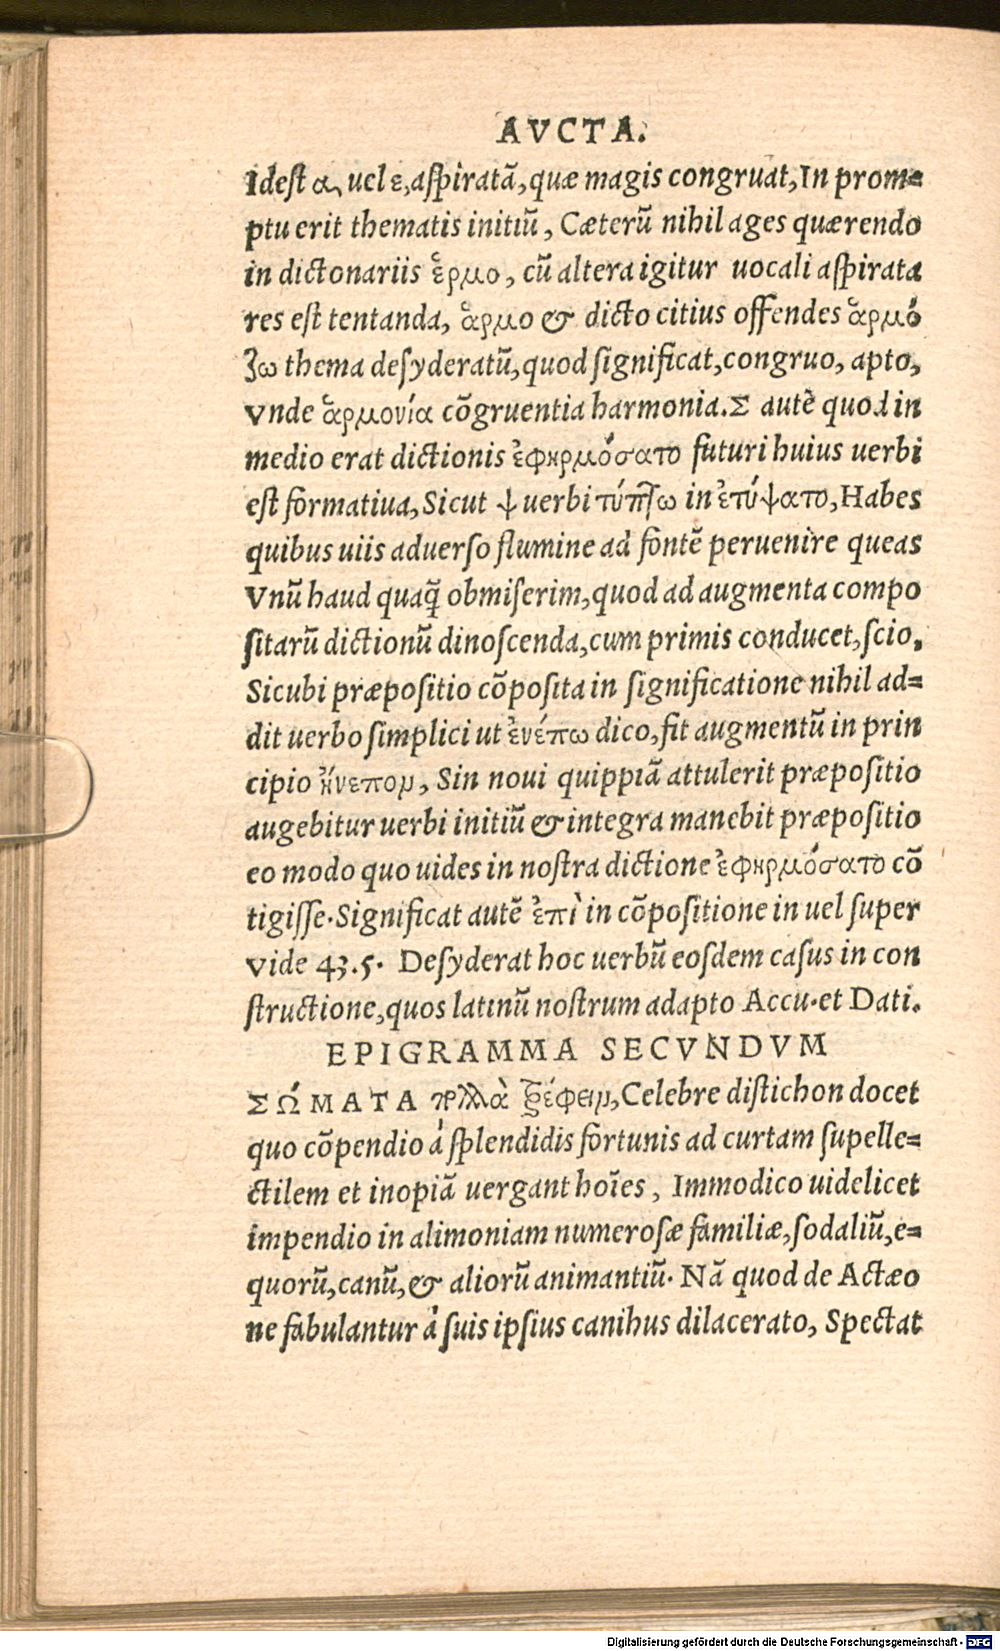 AVCTA.
Idest α, uel ε, aſpiratã, quæ magis congruat, In prom=
ptu erit thematis initiũ, Cæterũ nihil ages quærendo
in dictonariis ἕρμο, cũ altera igitur uocali aſpirata
res eſt tentanda, ἅρμο & dicto citius offendes ἁρμό
ζω thema deſyderatũ, quod ſignificat, congruo, apto,
Vnde ἁρμονία cõgruentia harmonia. Σ autẽ quod in
medio erat dictionis ἐφηρμόσατο futuri huius uerbi
eſt formatiua, Sicut ψ uerbi τύπτω in ἐτύψατο, Habes
quibus uiis aduerſo flumine ad fontẽ peruenire queas
Vnũ haud quaq̃ obmiſerim, quod ad augmenta compo
ſitarũ dictionũ dinoſcenda, cum primis conducet, ſcio,
Sicubi præpoſitio cõpoſita in ſignificatione nihil ad=
dit uerbo ſimplici ut ἐνέπω dico, fit augmentũ in prin
cipio ἤνεπον, Sin noui quippiã attulerit præpoſitio
augebitur uerbi initiũ & integra manebit præpoſitio
eo modo quo uides in noſtra dictione ἐφηρμόσατο cõ
tigiſſe. Significat autẽ ἐπὶ in cõpoſitione in uel ſuper
Vide 43.5. Deſyderat hoc uerbũ eoſdem caſus in con
ſtructione, quos latinũ noſtrum adapto Accu. et Dati.
EPIGRAMMA SECVNDVM
ΣΏΜΑΤΑ πολλὰ τρέφειν, Celebre diſtichon docet
quo cõpendio á ſplendidis fortunis ad curtam ſupelle=
ctilem et inopiã uergant hoĩes, Immodico uidelicet
impendio in alimoniam numeroſæ familiæ, ſodaliũ, e=
quorũ, canũ, & aliorũ animantiũ. Nã quod de Actæo
ne fabulantur á ſuis ipſius canibus dilacerato, Spectat
Digitalisierung gefördert durch die Deutsche Forschungsgemeinschaft - DFG